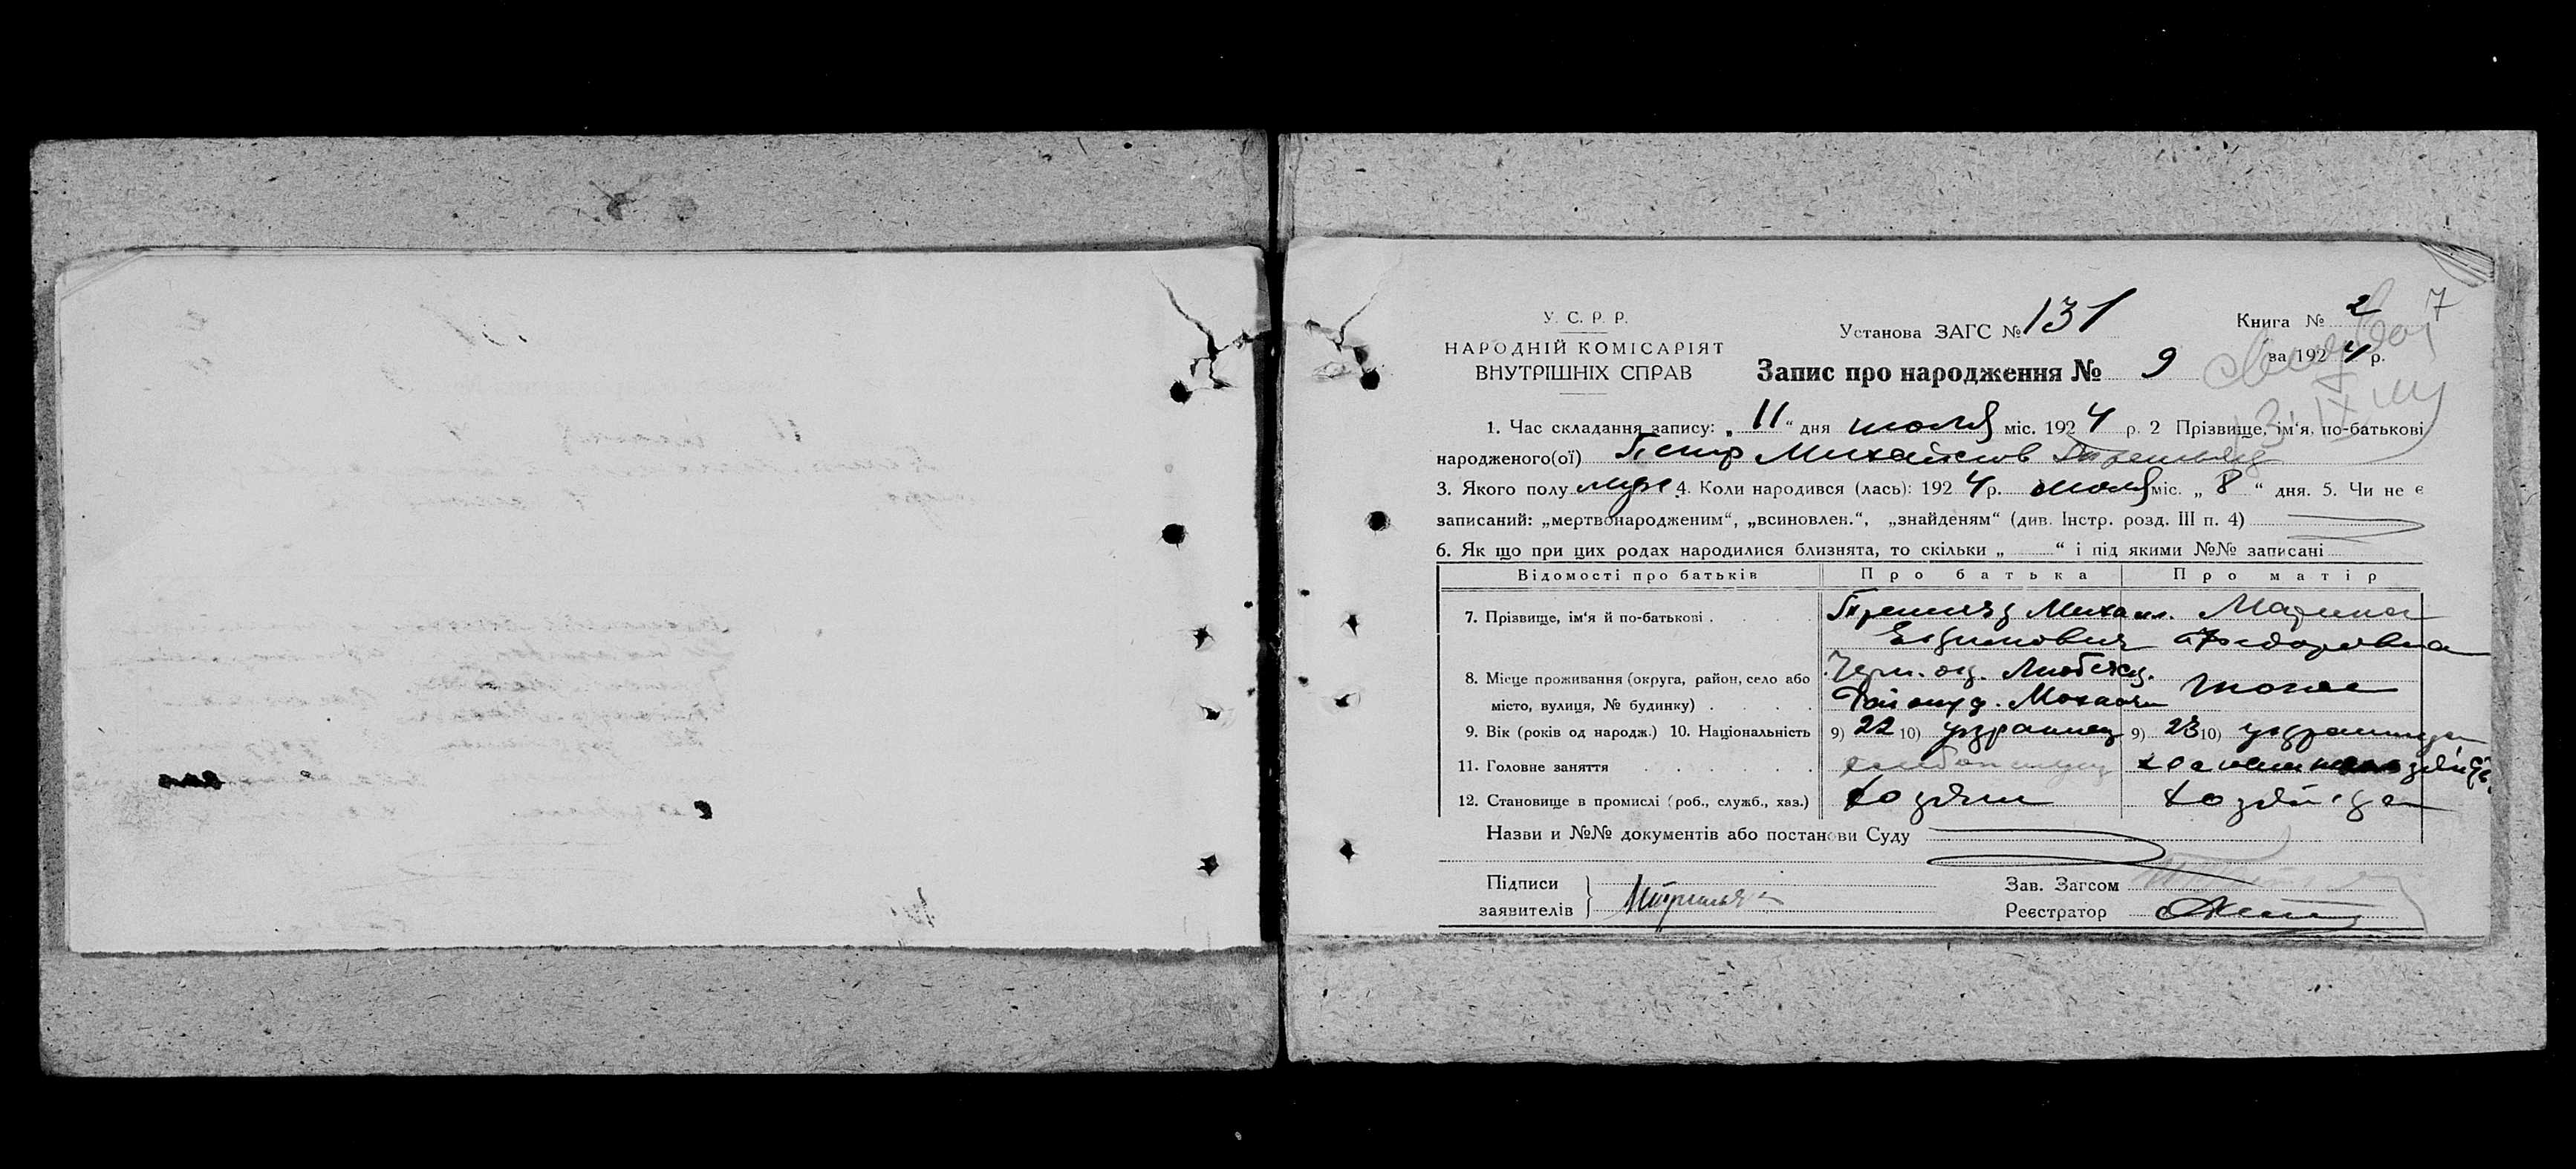 7
У. С. Р. Р.
НАРОДНІЙ КОМІСАРІЯТ
ВНУТРІШНІХ СПРАВ
Установа ЗАГС № 131
Книга № 2
за 1924 р.
Запис про народження № 9
1. Час складання запису: „ 11 “ дня июля міс. 1924 р. 2 Прізвище, ім'я, по-батькові
народженого(ої) Петр Михайлов
3. Якого полу муж 4. Коли народився (лась): 1924 р. июля міс. „ 8 “ дня. 5. Чи не є
записаний: „мертвонародженим“, „всиновлен.“, „знайденям“ (див. Інстр. розд. III п. 4)
6. Як що при цих родах народилися близнята, то скільки „ “ і під якими №№ записані
Відомості про батьків Про батька Про матір
7. Прізвище, ім'я й по-батькові . Михаил. Марина
Федоровна
8. Місце проживання (округа, район, село або Черн. ок. Любецк.
місто, вулиця, № будинку) района д.
9. Вік (років од народж.) 10. Національність 9) 22 10) украинец 9) 23 10) украинка
11. Головне заняття
12. Становище в промислі (роб., служб., хаз.) хозяин хозяйка
Назви и №№ документів або постанови Суду
Підписи
заявителів
Зав. Загсом
Реєстратор